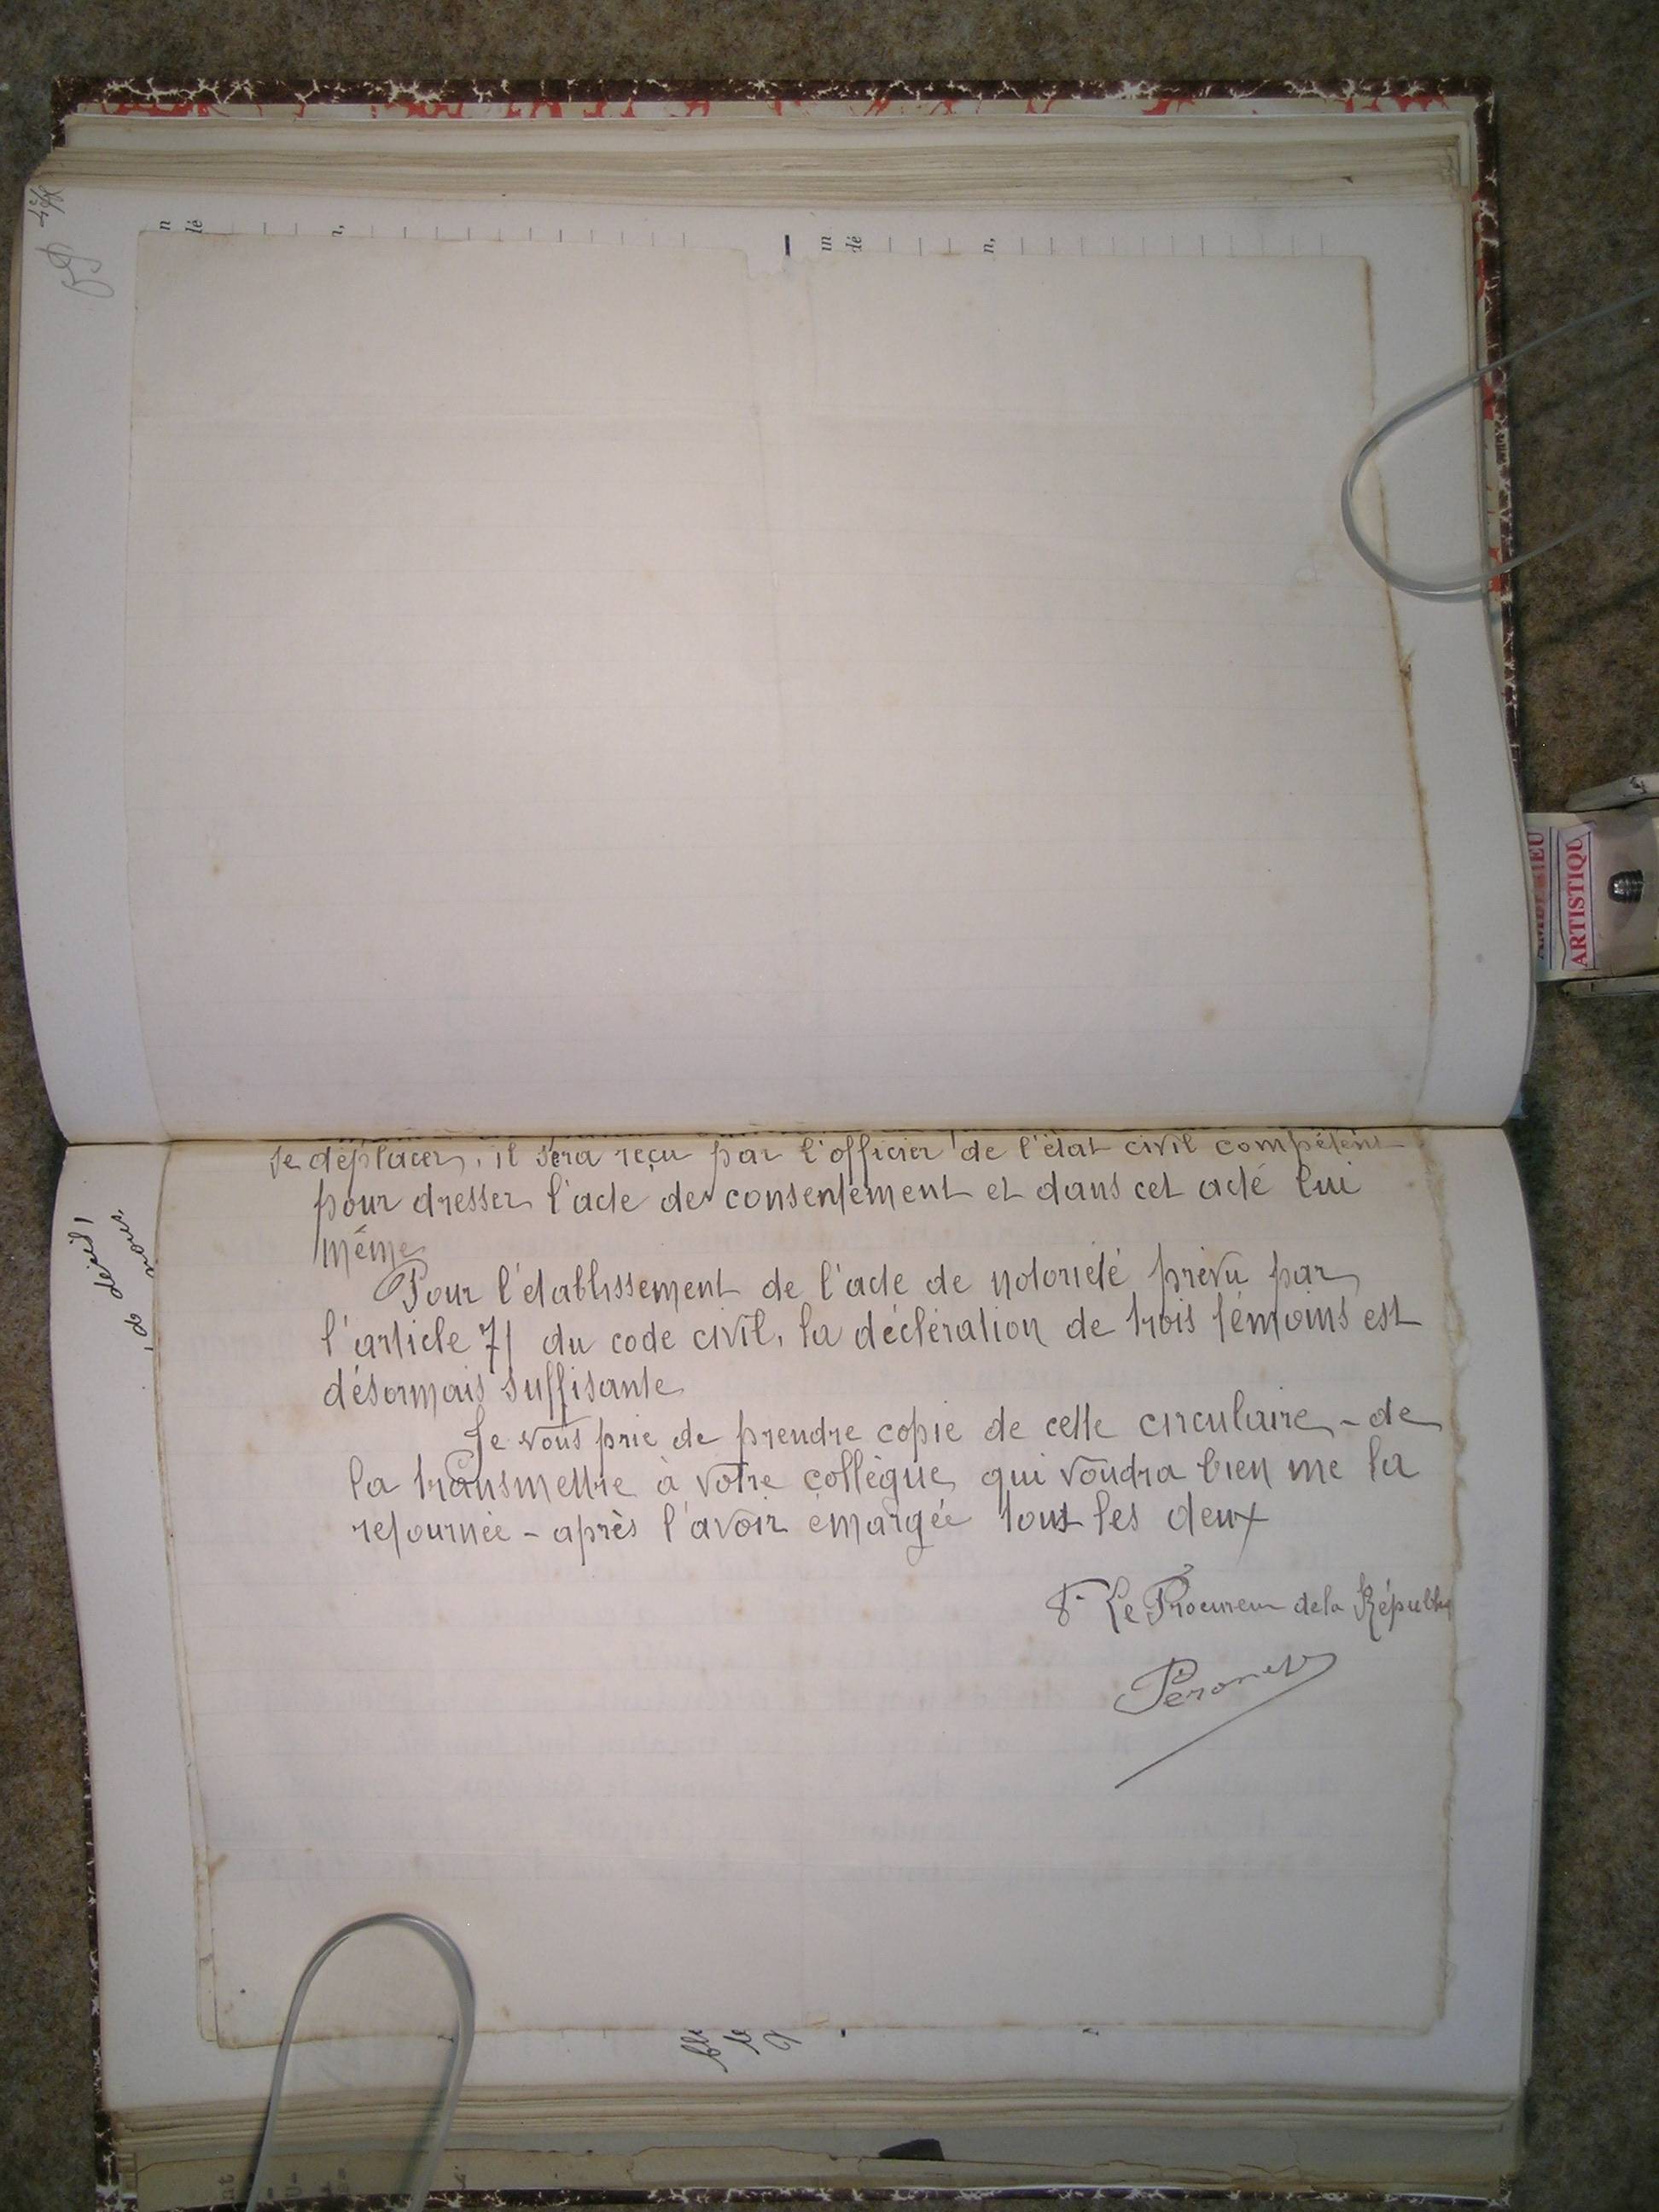 se déplacer, il sera reçu par l'officier de l'état civil compétent
pour dresser l'acte de consentement et dans cet acte lui
même
Pour l'établissement de l'acte de notoriété prévu par
l'article 71 du code civil, la décleration de trois témoins est
désormais suffisante
Je vous prie de prendre copie de cette circulaire - de
la transmettre à votre collègue qui voudra bien me la
retournée - après l'avoir émargée tous les deux
Le Procureur de la Républiq
Péronet
n
dé
n,
m
dé
n,
ARTISTIQU